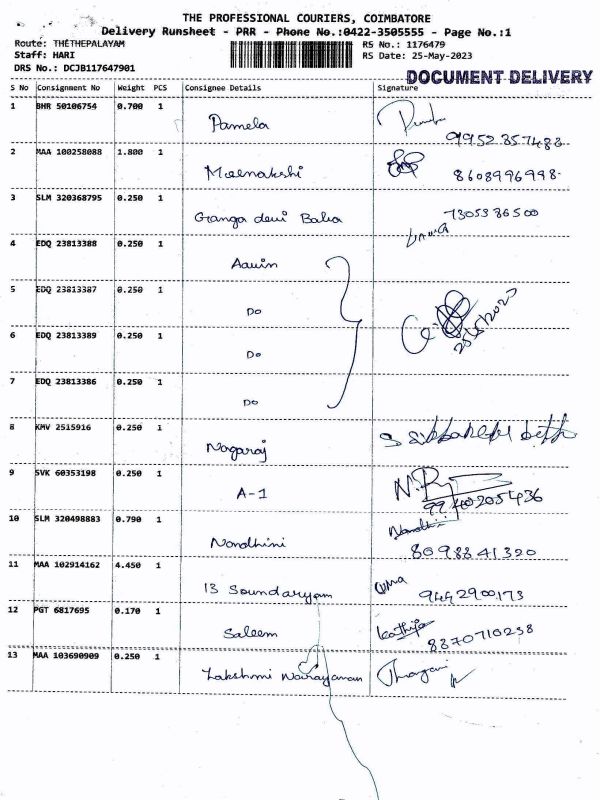 THE PROFESSIONAL COURIERS, COIMBATORE
Delivery Runsheet - PRR - Phone No.:0422-3505555 - Page No.:1
Route: THETHEPALAYAM
RS No.: 1176479
Staff: HARI
RS Date: 25-May-2023
DRS No.: DCJB117647901
DOCUMENT DELIVERY
S No Consignment No Weight PCS Consignee Details Signature
1 BHR 50106754 0.700 1
Pamela 9952357488
2 MAA 100258088 1.800 1
Meenakshi 8608996998
3 SLM 320368795 0.250 1
Ganga devi Balia 7305386500
4 EDQ 23813388 0.250 1
Aavin
5 EDQ 23813387 0.250 1
Do 25/5/2023
6 EDQ 23813389 0.250 1
Do
7 EDQ 23813386 0.250 1
Do
8 KMV 2515916 0.250 1
Nagaraj
9 SVK 60353198 0.250 1
A-1 9940205436
10 SLM 320498883 0.790 1
Nandhini Nandhini
8098841320
11 MAA 102914162 4.450 1
13 Soundaryam UMA 9442900173
12 PGT 6817695 0.170 1
Saleem Kathija
8870710238
13 MAA 103690909 0.250 1
Lakshmi Narayanan